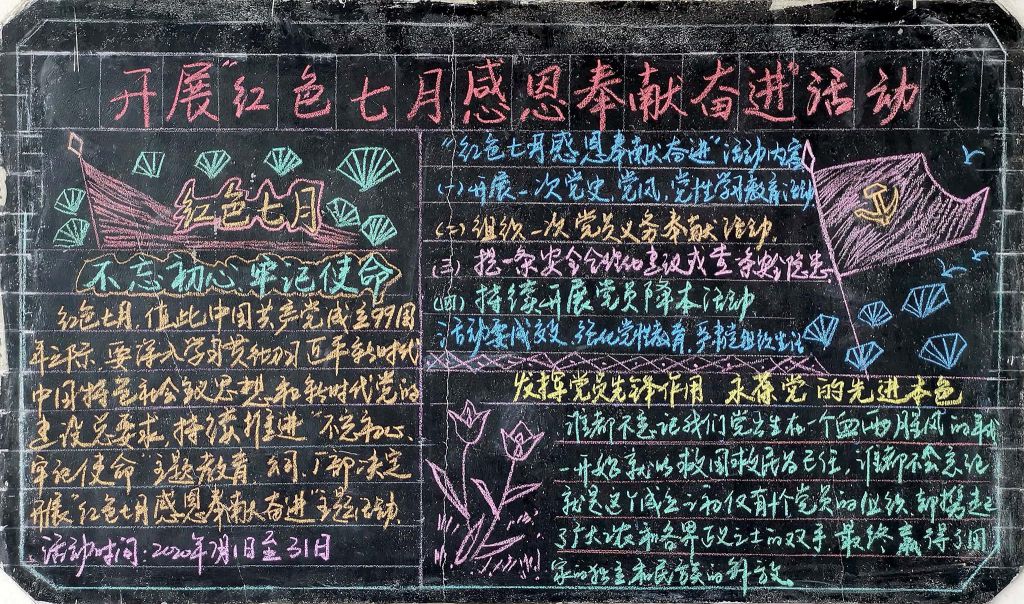 开展“红色七月感恩奉献奋进”活动
红色七月
不忘初心 牢记使命
红色七月，值此中国共产党成立99周
年之际，要深入学习贯彻习近平新时代
中国特色社会主义思想和新时代党的
建设总要求，持续推进“不忘初心、
牢记使命”主题教育，公司、厂部决定
开展“红色七月感恩奉献奋进”主题活动。
活动时间：2020年7月1日至31日
“红色七月感恩奉献奋进”活动内容
(一)开展一次党史、党风、党性学习教育活动
(二)组织一次党员义务奉献活动。
(三)提一条安全合理化建议或查一条安全隐患
(四)持续开展党员降本活动
活动要成效，强化党性教育，严肃组织生活
发挥党员先锋作用 永葆党的先进本色
谁都不忘记我们党出生在一个血雨腥风的年代
一开始就以救国救民为己任，谁都不会忘记
就是这个成立之初仅有几十个党员的组织，却携起
了广大工农和各界正义之士的双手，最终赢得了国
家的独立和民族的解放